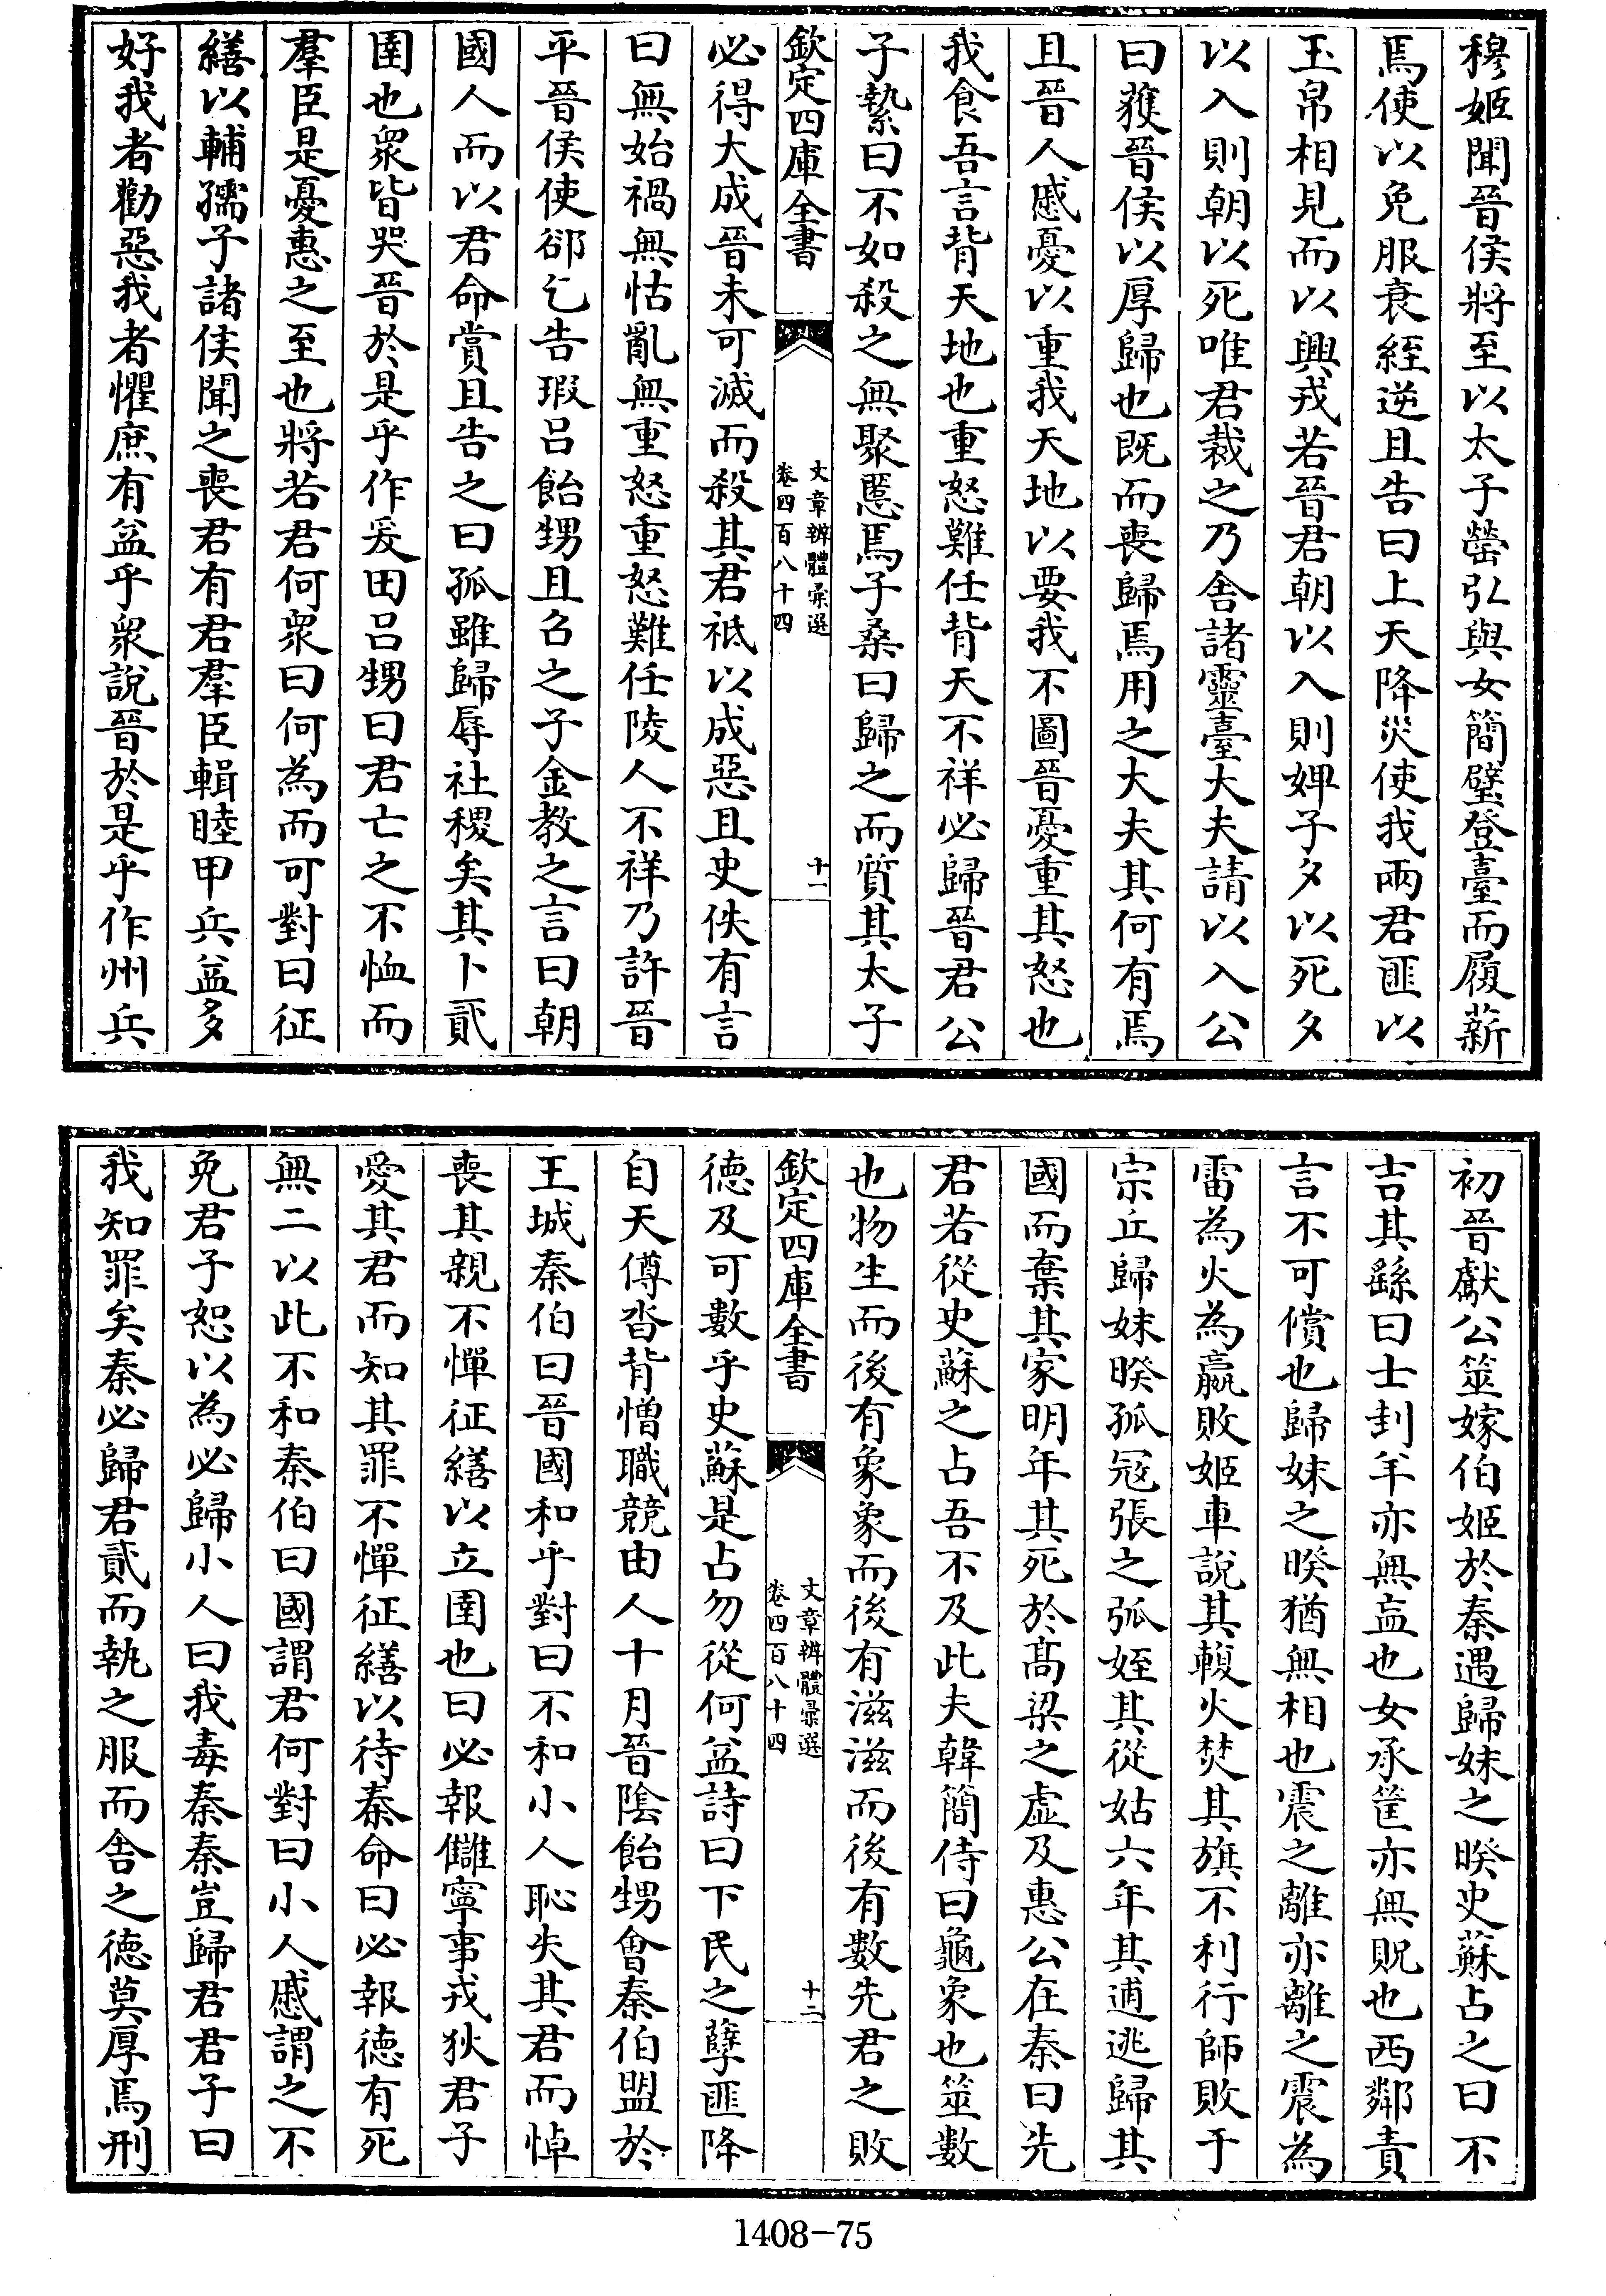 穆姬聞晉侯將至以太子罃弘與女簡璧登臺而履薪
焉使以免服衰絰逆且告曰上天降災使我兩君匪以
玉帛相見而以興戎若晉君朝以入則婢子夕以死夕
以入則朝以死唯君裁之乃舍諸靈臺大夫請以入公
曰獲晉侯以厚歸也既而喪歸焉用之大夫其何有焉
且晉人慼憂以重我天地以要我不圖晉憂重其怒也
我食吾言背天地也重怒難任背天不祥必歸晉君公
子縶曰不如殺之無聚慝焉子桑曰歸之而質其太子
欽定四庫全書
文章辨體彙選
卷四百八十四
十一
必得大成晉未可滅而殺其君祗以成惡且史佚有言
曰無始禍無怙亂無重怒重怒難任陵人不祥乃許晉
平晉侯使郤乞告瑕呂飴甥且召之子金教之言曰朝
國人而以君命賞且告之曰孤雖歸辱社稷矣其卜貳
圉也衆皆哭晉於是乎作爰田呂甥曰君亡之不恤而
羣臣是憂惠之至也將若君何衆曰何為而可對曰征
繕以輔孺子諸侯聞之喪君有君羣臣輯睦甲兵益多
好我者勸惡我者懼庶有益乎衆說晉於是乎作州兵
初晉獻公筮嫁伯姬於秦遇歸妹之睽史蘇占之曰不
吉其繇曰士刲羊亦無衁也女承筐亦無貺也西鄰責
言不可償也歸妹之睽猶無相也震之離亦離之震為
雷為火為嬴敗姬車說其輹火焚其旗不利行師敗于
宗丘歸妹睽孤冦張之弧姪其從姑六年其逋逃歸其
國而棄其家明年其死於髙梁之虚及惠公在秦曰先
君若從史蘇之占吾不及此夫韓簡侍曰龜象也筮數
也物生而後有象象而後有滋滋而後有數先君之敗
欽定四庫全書
文章辨體彙選
卷四百八十四
十二
德及可數乎史蘇是占勿從何益詩曰下民之孽匪降
自天僔沓背憎職競由人十月晉陰飴甥會秦伯盟於
王城秦伯曰晉國和乎對曰不和小人恥失其君而悼
喪其親不憚征繕以立圉也曰必報讎寧事戎狄君子
愛其君而知其罪不憚征繕以待秦命曰必報德有死
無二以此不和秦伯曰國謂君何對曰小人慼謂之不
免君子恕以為必歸小人曰我毒秦秦豈歸君君子曰
我知罪矣秦必歸君貳而執之服而舍之德莫厚焉刑
1408-75